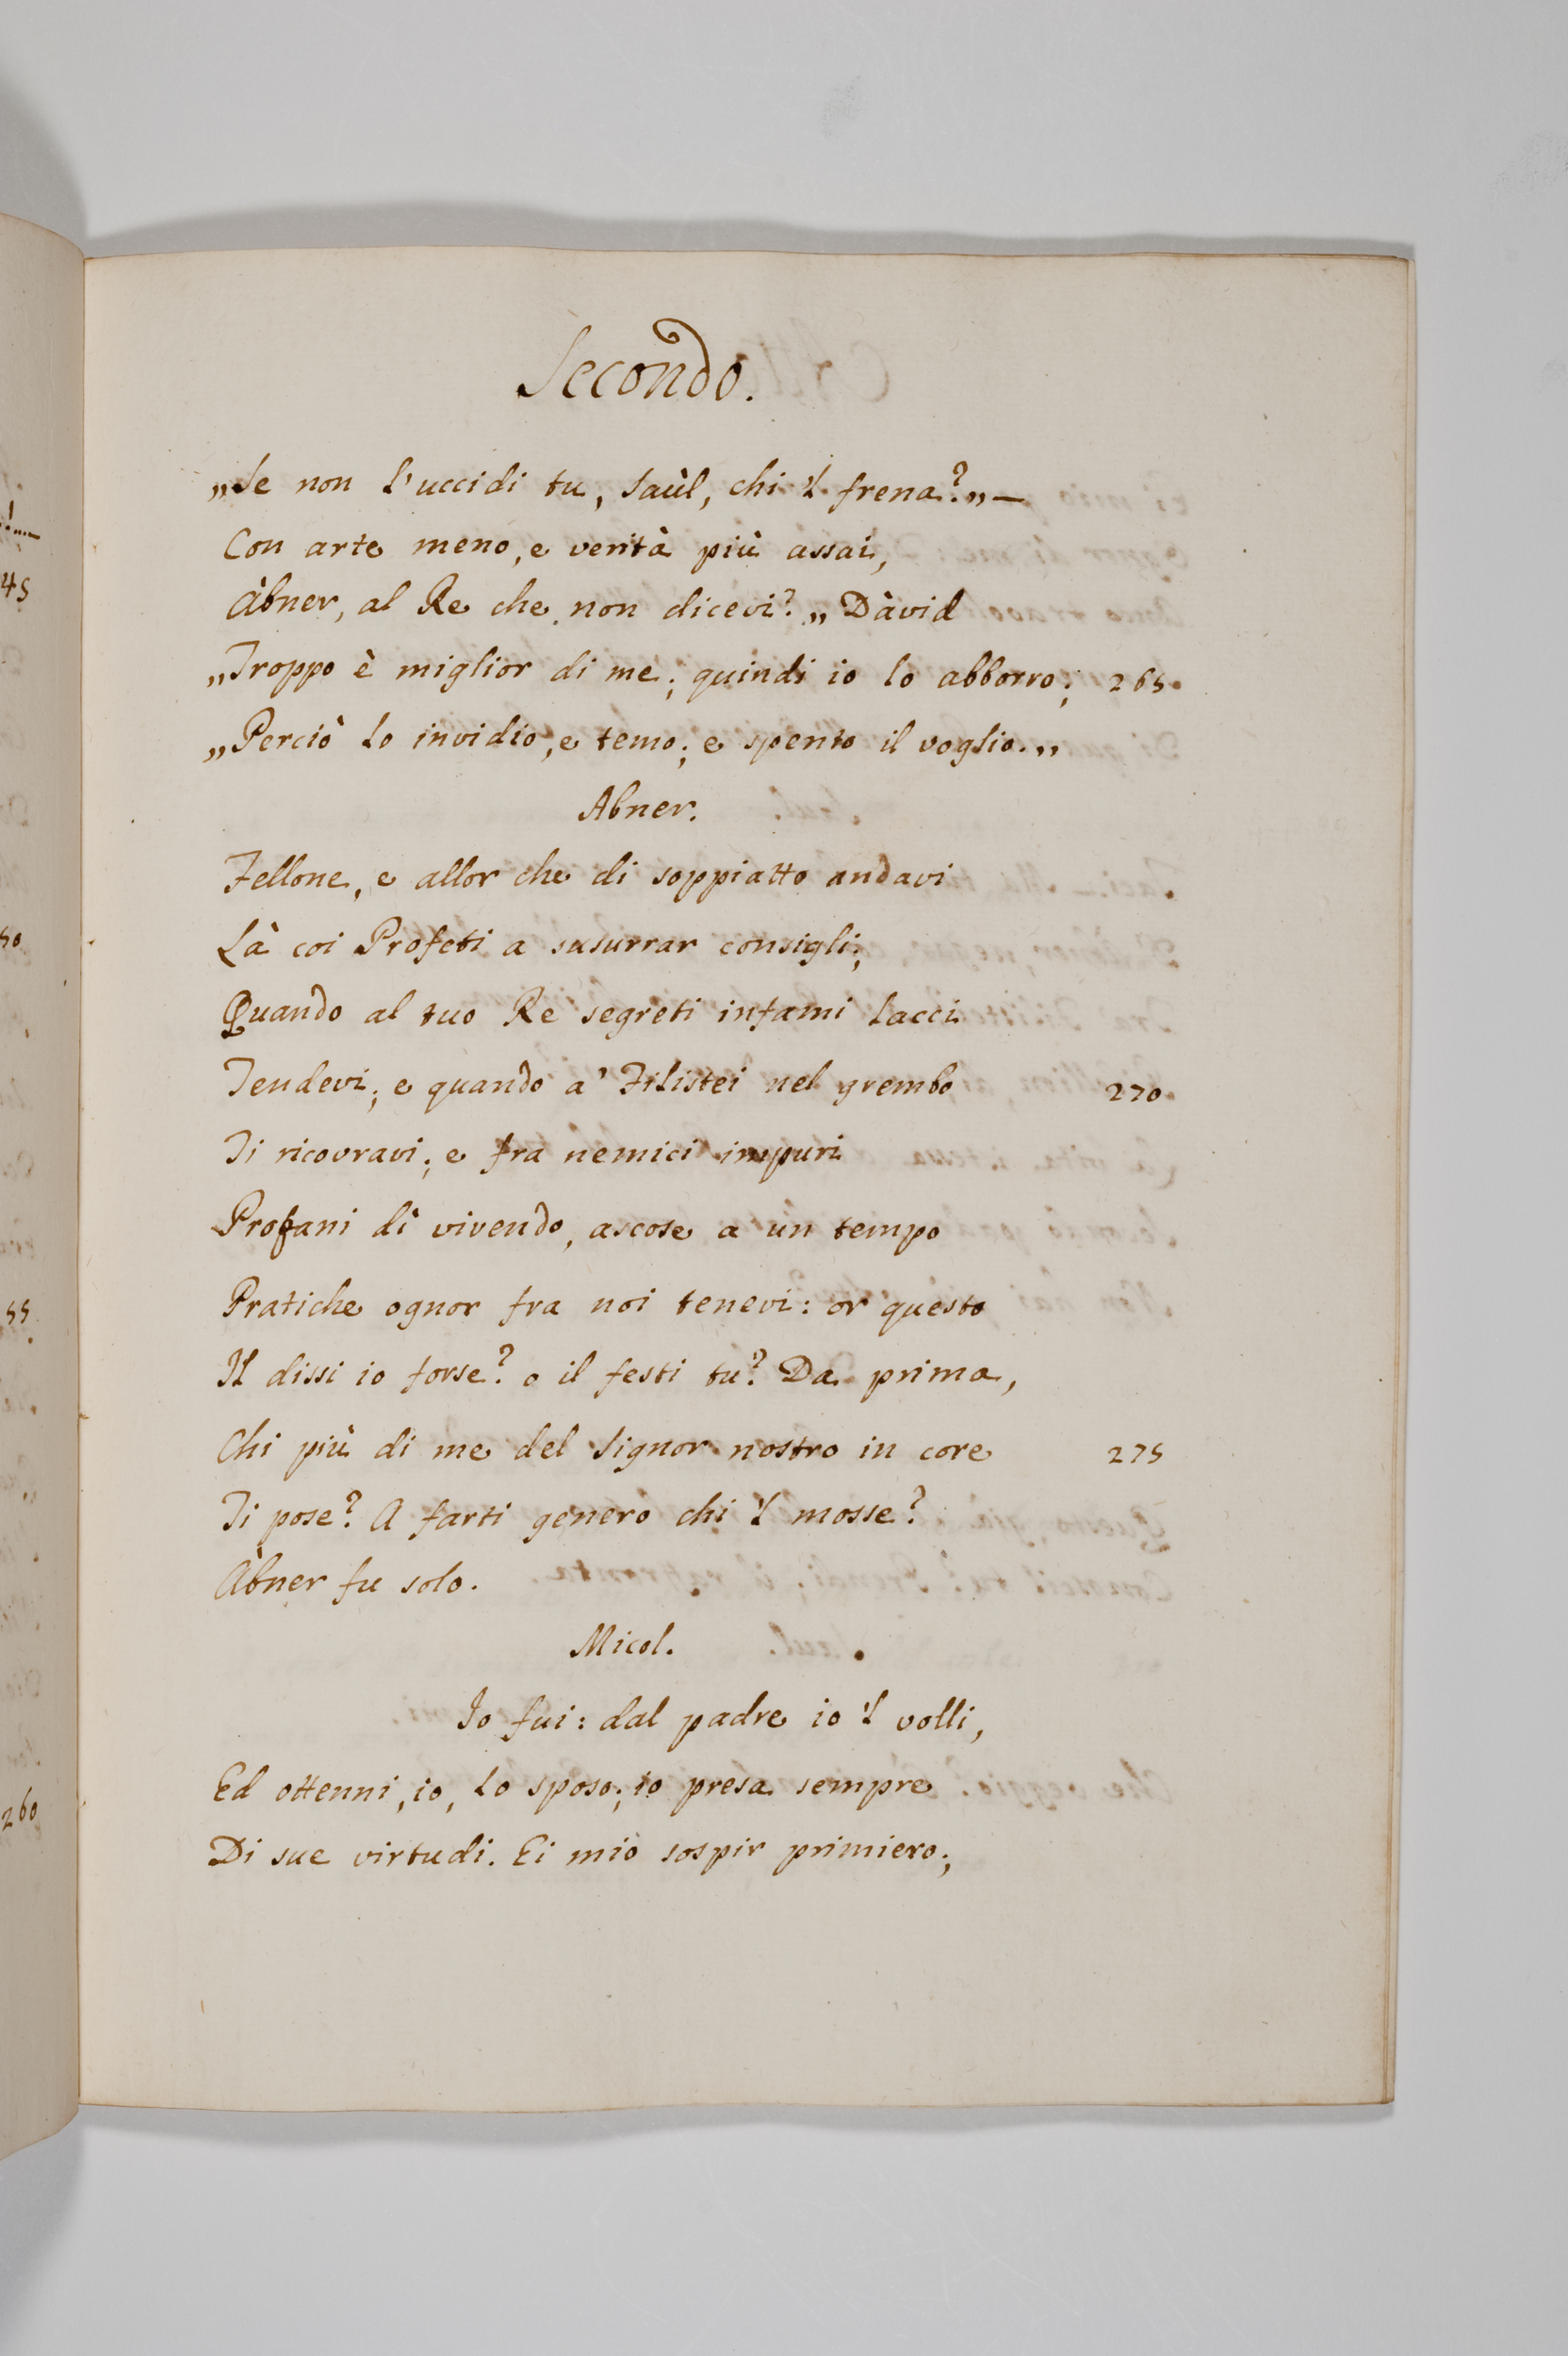 Secondo.
„Se non l'uccidi tu, Saùl, chi 'l frena?„—
Con arte meno, e verità più assai,
Àbner, al Re che non dicevi? „Dàvid
„Troppo è miglior di me; quindi io lo abborro; 265.
„Perciò lo invidio, e temo; e spento il voglio.„
Abner.
Fellone, e allor che di soppiatto andavi
Là coi Profeti a susurrar consigli;
Quando al tuo Re segreti infami lacci
Tendevi; e quando a' Filistei nel grembo 270.
Ti ricovravi; e fra nemici impuri
Profani dì vivendo, ascose a un tempo
Pratiche ognor fra noi tenevi: or questo
Il dissi io forse? o il festi tu? Da prima,
Chi più di me del Signor nostro in core 275
Ti pose? A farti genero chi 'l mosse?
Àbner fu solo.
Micol.
Io fui: dal padre io 'l volli,
Ed ottenni, io, lo sposo; io presa sempre
Di sue virtudi. Ei mio sospir primiero;
45
50
55
260